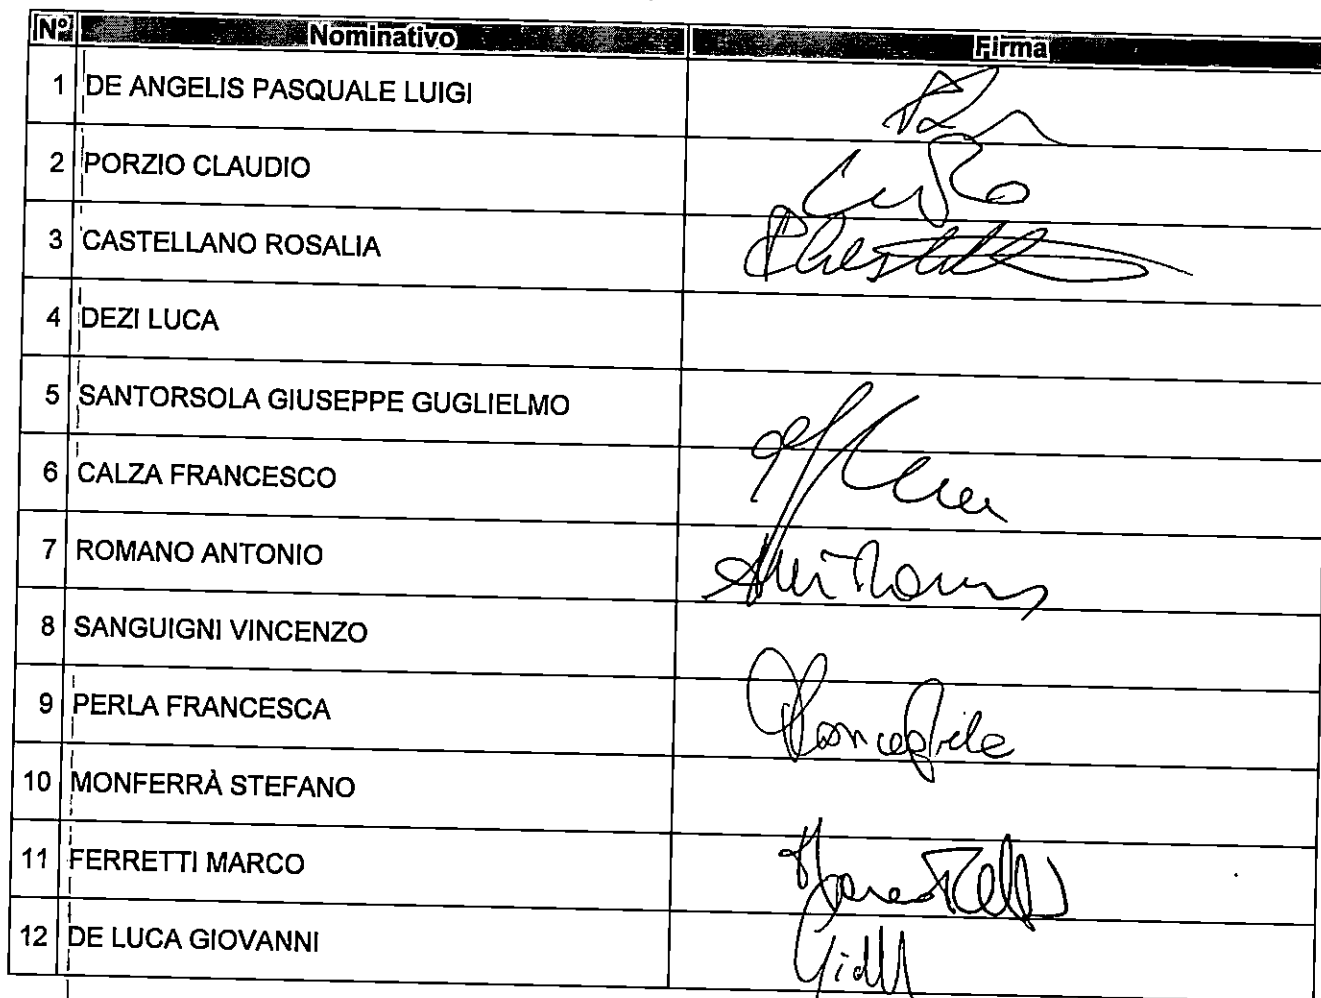 N° Nominativo Firma
1 DE ANGELIS PASQUALE LUIGI
2 PORZIO CLAUDIO
3 CASTELLANO ROSALIA
4 DEZI LUCA
5 SANTORSOLA GIUSEPPE GUGLIELMO
6 CALZA FRANCESCO
7 ROMANO ANTONIO
8 SANGUIGNI VINCENZO
9 PERLA FRANCESCA
10 MONFERRÀ STEFANO
11 FERRETTI MARCO
12 DE LUCA GIOVANNI